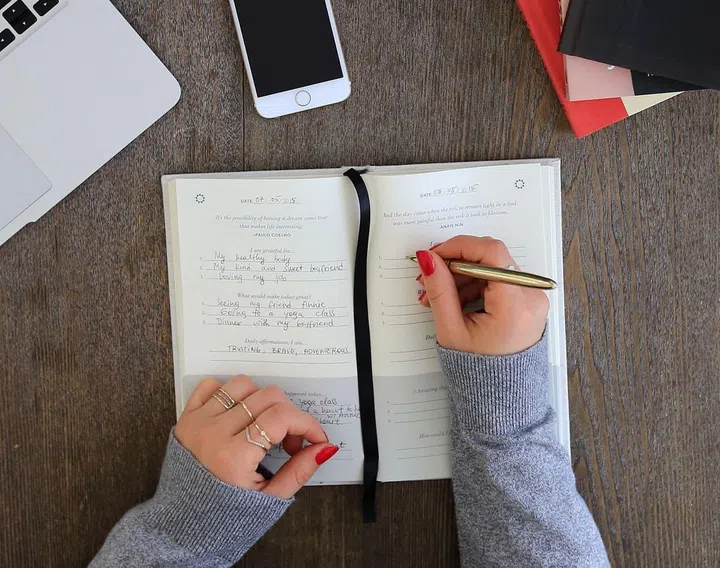 DATE 07.05.2015
It's the possibility of having a dream come true
that makes life interesting.
-PAULO COELHO
I am grateful for...
1. My healthy body
2. My kind and sweet boyfriend
3. Loving my job
What would make today great?
1. Seeing my friend Annie
2. Going to a yoga class
3. Dinner with my boyfriend
Daily affirmations. I am...
TRUSTING, BRAVE, ADVENTUROUS
happened today...
yoga class
of a heart to
w/ Annie
DATE 07.05.2015
And the day came when the risk to remain tight in a bud
was more painful than the risk it took to blossom.
-ANAIS NIN
1.
2.
3.
1.
2.
3.
Daily
3 Amazing
1.
2.
3.
How could I